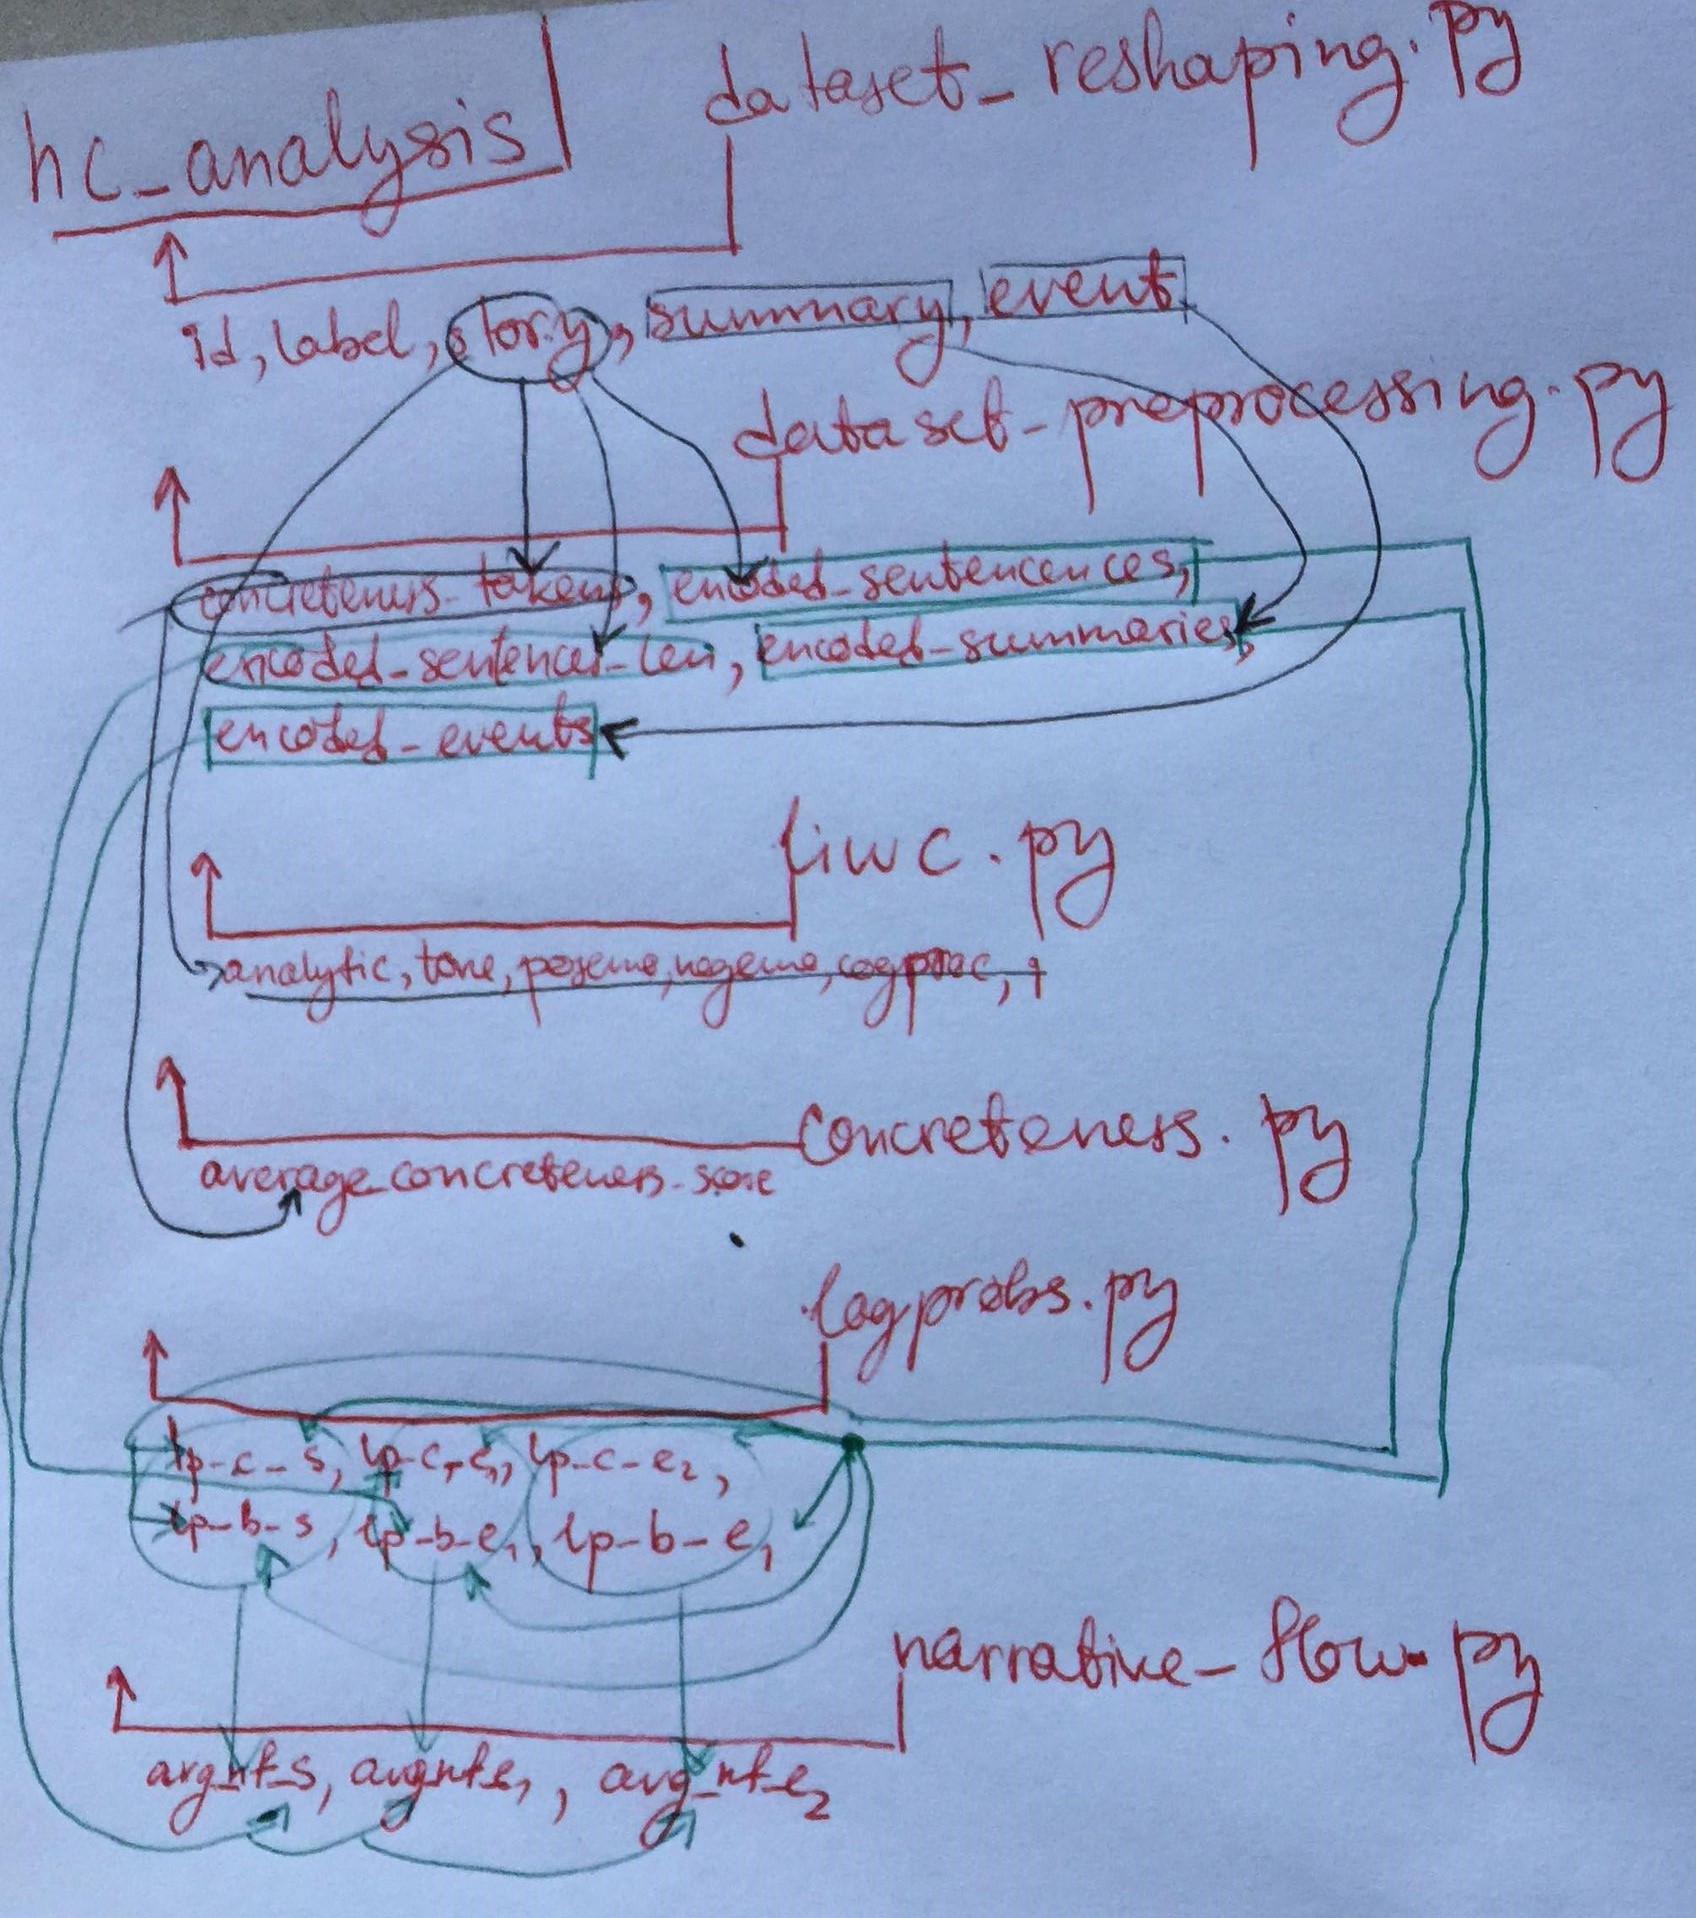 dataset_reshaping.py
hc_analysis
id, label, story, summary, event
dataset-preprocessing.py
concreteness_tokens, encoded-sentencences,
encoded-sentences-len, encoded-summaries,
encoded-events
liwc.py
analytic, tone, posemo, negemo, cogproc, +
concreteness.py
average_concreteness_score
logprobs.py
lp-c-s, lp-c-e1, lp-c-e2,
lp-b-s, lp-b-e1, lp-b-e1
narrative-flow.py
avg_nf_s, avg_nf_e1, avg_nf_e2